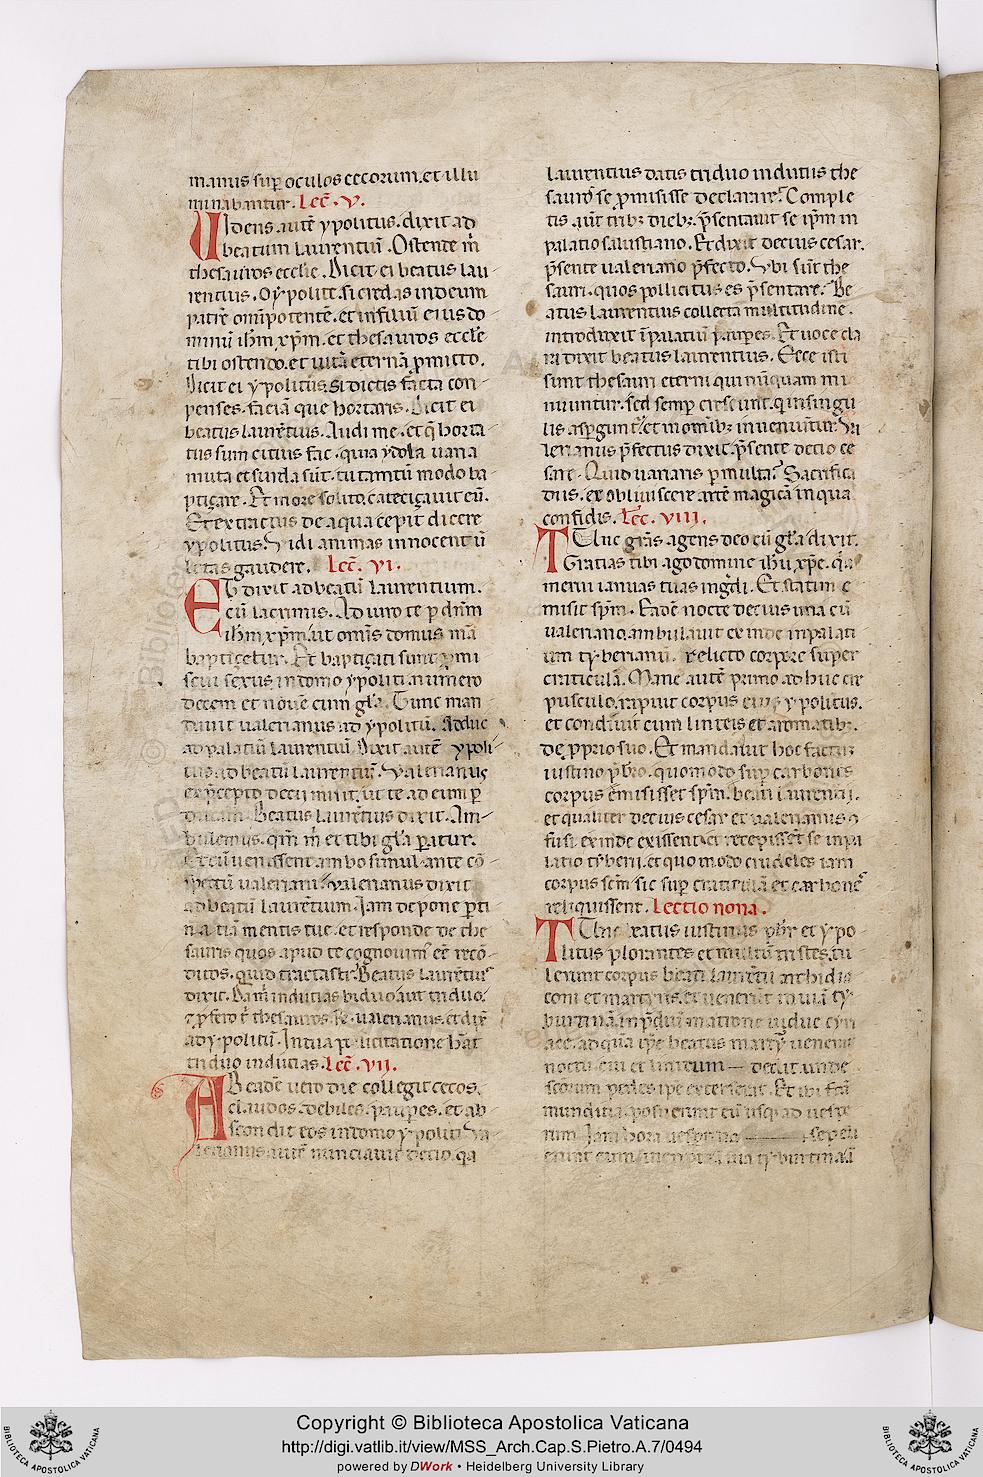 manus sup̱ oculos cecorum. et illu
minabantur. Lec̄. V.
UIdens autē ypolitus. dixit ad
beatum laurentiū. Ostende m̄
thesauros ecclie. Dicit ei beatus lau
rentius. O ypolite. si credas in deum
patrē om̄ipotentē. et in filiū eius do
minū ih̄m xp̄m. et thesauros eccl̄e
tibi ostendo. et uitā eternā p̱mitto.
Dicit ei ypolitus. Si dictis facta con
penses. faciā que hortaris. Dicit ei
beatus laurētius. Audi me. et q̄ horta
tus sum citius fac. quia ydola uana
muta et surda sūt. tu tantū modo ba
ptiçare. Et more solito. cateciçauit eū.
Et extractus de aqua cepit dicere
ypolitus. Vidi animas innocentū
letas gaudere. Lec̄. VI.
ET dixit ad beatū laurentium.
cū lacrimis. Adiuro te p̱ dn̄m
ih̄m xp̄m. ut omīs domus mā
baptiçetur. Et baptiçati sunt p̱mi
scui sexus in domo ypoliti. numero
decem et nouē cum gl̄a. Tunc man
dauit ualerianus ad ypolitū. Adduc
ad palatiū laurentiū. Dixit autē ypoli
tus ad beatū laurentiū. Valerianus
ex p̄cepto decii misit. ut te ad eum p̱
ducam. Beatus laurētius dixit. Am
bulemus. qm̄ m̄ et tibi gl̄a paratur.
Et cū uenissent ambo simul ante cō
spectū ualeriani. ualerianus dixit
ad beatū laurētium. Iam depone p̱ti
naciā mentis tue. et responde de the
sauris quos apud te cognouim̄ eē recō
ditos. quid tractasti. Beatus laurētius
dixit. Dam̄ inducias biduo aut triduo.
ualerianus et dix̄
ad ypolitū. In tua
triduo inducias. Lec̄. VII.
AB eadē uero die collegit cecos.
claudos. debiles. paup̱es. et ab
scondit eos in domo ypoliti. Va
lerianus autē nunciauit decio. qa
laurentius datis triduo induciis the
sauros se p̱misisse declarare. Comple
tis aūt trib; dieb; p̄sentauit se ip̄m in
palatio salustiano. Et dixit decius cesar.
p̄sente ualeriano p̄fecto. Vbi sūt the
sauri. quos pollicitus es p̄sentare. Be
atus laurentius collecta multitudine.
introduxit ī palatiū paup̱es. Et uoce cla
ra dixit beatus laurentius. Ecce isti
sunt thesauri eterni qui nūquam mi
nuuntur. sed semp̱ crescunt. qui in singu
lis asp̱guntr̄. et in omīb; inueniūtur. Va
lerianus p̄fectus dixit. p̄sente decio ce
sare. Quid uariaris p̱ multa. Sacrifica
diis. et obliuiscere artē magicā in qua
confidis. Lec̄. VIII.
TUnc grās agens deo cū gl̄a dixit.
Gratias tibi ago domine ih̄u xp̄e. qa
merui ianuas tuas ing̱di. Et statim e
misit sp̄m. Eadē nocte decius una cū
ualeriano. ambulauit exinde in palati
um tyberianū. relicto corpore super
craticulā. Mane autē primo adhuc cre
pusculo. rapuit corpus eius ypolitus.
et condiuit cum linteis et aromatib;
de p̱prio suo. Et mandauit hoc factū
iustino p̄bro. quomodo sup̱ carbones
corpus emisisset sp̄m. beati laurentii.
et qualiter decius cesar et ualerianus
fusi exinde exissent. et recepissēt se in pa
latio tyberii. et quomodo crudeles iam
corpus scm̄ sic sup̱ craticulā et carbones
reliquissent. Lectio nona.
TUnc beatus iustinus p̄br et ypo
litus plorantes et multū tristes. tu
lerunt corpus beati laurētii archidia
coni et martyris. et uenerūt in uiā ty
burtinā. in p̄diū matrone uidue cyri
ace. ad quā ip̄e beatus martyr uenerat
noctu. cui et linteum — dedit. unde
scorum pedes ip̄e exterserat. Et ibi
posuerunt eū usq; ad uespe
rum. Iam hora uespertina — sepeli
erunt eum in uia tyburtina
Copyright © Biblioteca Apostolica Vaticana
http://digi.vatlib.it/view/MSS_Arch.Cap.S.Pietro.A.7/0494
powered by DWork • Heidelberg University Library
BIBLIOTECA APOSTOLICA VATICANA
BIBLIOTECA APOSTOLICA VATICANA